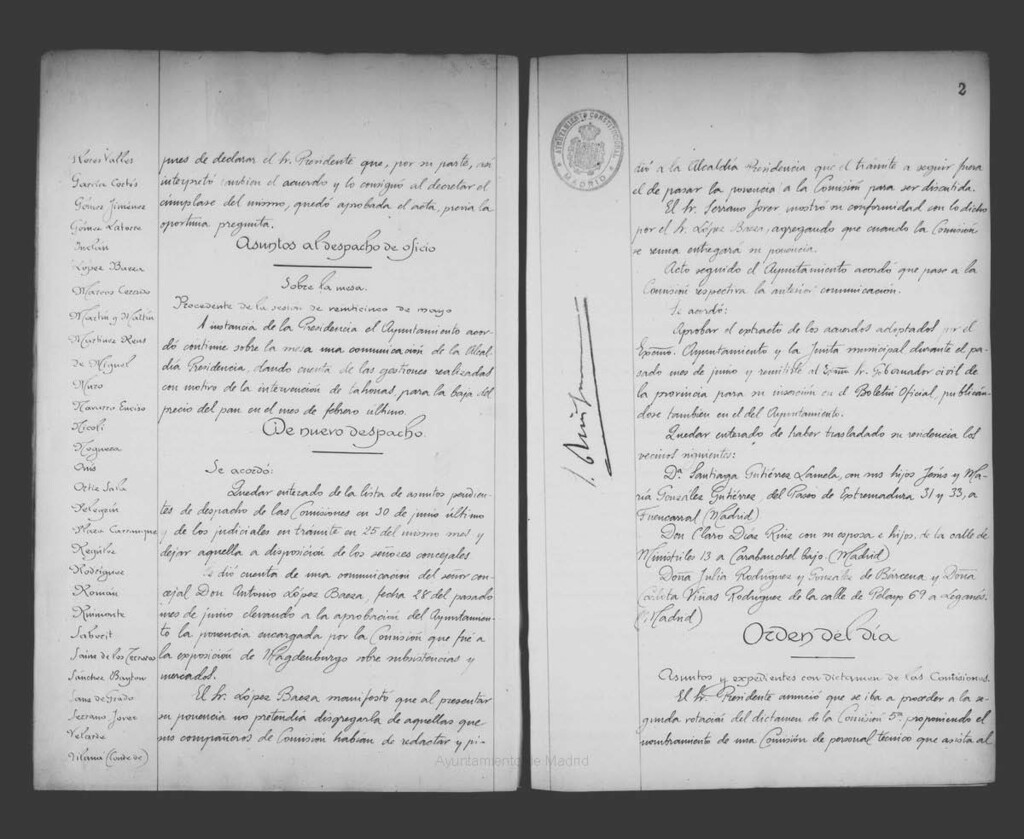 Flores Valles
García Cortés
Gómez Jiménez
Gómez Latorre
López Baeza
Marcos
Martín y Martín
Martínez Reus
de Miguel
Muro
Navarro Enciso
Nicoli
Noguera
Onís
Ortiz
Pelegrín
Plaza Carranque
Regúlez
Rodríguez
Román
Saborit
Sainz de los Terreros
Sánchez Baytón
Sanz de Grado
Serrano Jover
Velarde
Vilana (Conde de)
pues de declarar el Sr. Presidente que, por su parte, así
interpretó tambien el acuerdo y lo consignó al decretar el
cúmplase del mismo, quedó aprobada el acta, previa la
oportuna pregunta.
Asuntos al despacho de oficio
Sobre la mesa.
Procedente de la sesión de veinticinco de mayo
A instancia de la Presidencia el Ayuntamiento acor-
dó continúe sobre la mesa una comunicación de la Alcal-
día Presidencia, dando cuenta de las gestiones realizadas
con motivo de la intervención de tahonas, para la baja del
precio del pan en el mes de febrero último.
De nuevo despacho.
Se acordó:
Quedar enterado de la lista de asuntos pendien-
tes de despacho de las Comisiones en 30 de junio último
y de los judiciales en trámite en 25 del mismo mes y
dejar aquella a disposición de los señores concejales
Se dió cuenta de una comunicación del señor con-
cejal Don Antonio López Baeza, fecha 28 del pasado
mes de junio elevando a la aprobación del Ayuntamien-
to la ponencia encargada por la Comisión que fué a
la exposición de Magdenburgo sobre subsistencias y
mercados.
El Sr. López Baeza manifestó que al presentar
su ponencia no pretendia disgregarla de aquellas que
sus compañeros de Comisión habian de redactar y pi-
2
AYUNTAMIENTO CONSTITUCIONAL
MADRID
dió a la Alcaldía Presidencia que el trámite a seguir fuera
el de pasar la ponencia a la Comisión para ser discutida.
El Sr. Serrano Jover mostró su conformidad con lo dicho
por el Sr. López Baeza, agregando que cuando la Comisión
se reuna entregará su ponencia.
Acto seguido el Ayuntamiento acordó que pase a la
Comisión respectiva la anterior comunicación.
Se acordó:
Aprobar el extracto de los acuerdos adoptados por el
Excmo. Ayuntamiento y la Junta municipal durante el pa-
sado mes de junio y remitirle al Excmo Sr. Gobernador civil de
la provincia para su inserción en el Boletin Oficial, publicán-
dose tambien en el del Ayuntamiento.
Quedar enterado de haber trasladado su residencia los
vecinos siguientes:
Dª. Santiaga Gutiérrez Lamela, con sus hijos Jesús y Ma-
ría González Gutiérrez, del Paseo de Extremadura, 31 y 33, a
Fuencarral (Madrid)
Don Claro Díaz Ruiz con su esposa e hijos, de la calle de
Ministriles 13 a Carabanchel bajo (Madrid)
Doña Julia Rodríguez y González de Bárcena y Doña
Viñas Rodríguez de la calle de Pelayo 67 a Leganés.
(Madrid)
Orden del día
Asuntos y expedientes con dictamen de las Comisiones.
El Sr. Presidente anunció que se iba a proceder a la se-
gunda votación del dictamen de la Comisión 5ª proponiendo el
nombramiento de una Comisión de personal técnico que asista al
Ayuntamiento de Madrid